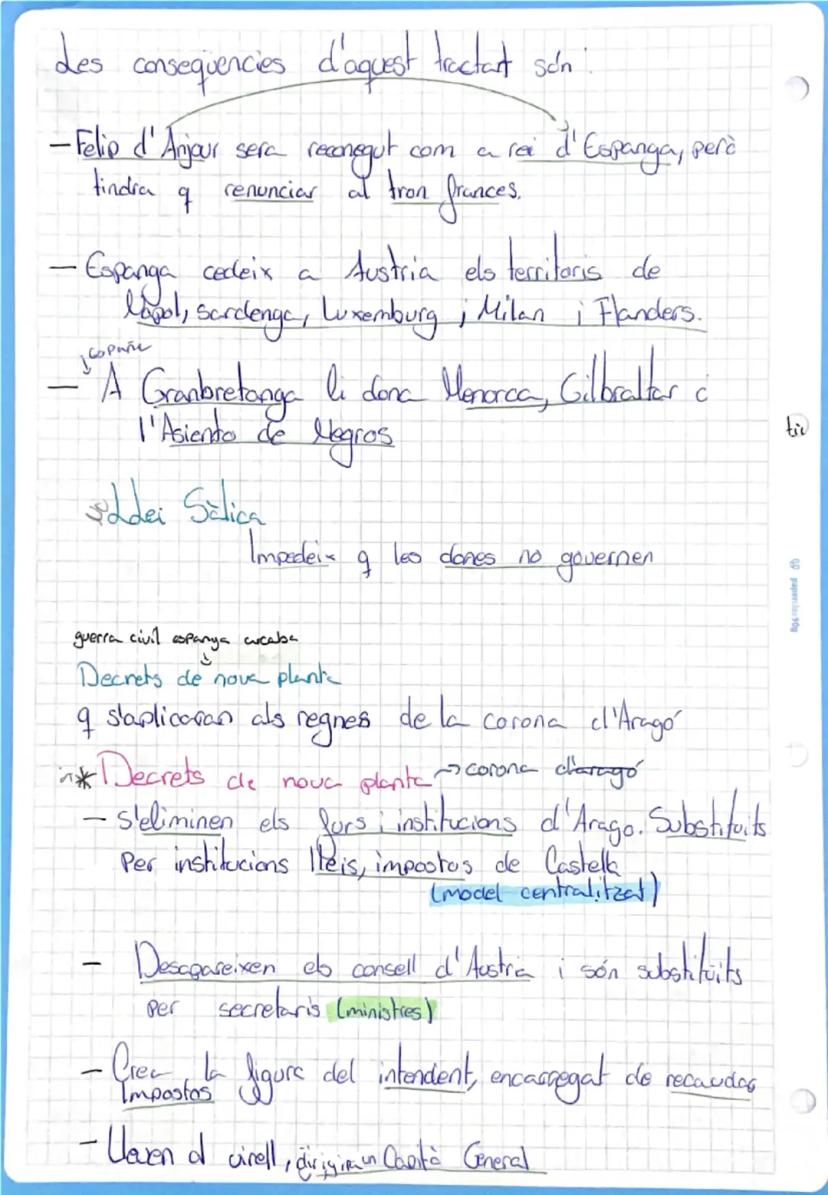 Les conseqüencies d'aquest tractart són:
- Felip d'Anjour sera reconegut com a rei d'Espanga, però
tindra q renunciar al tron frances.
- Espanga cedeix a Austria els territoris de
Nàpol, Sardenga, Luxemburg i Milan i Flanders.
españa
- A Granbretanga li dona Menorca, Gilbraltar i
l'Asiento de Negros
tic
Llei Sàlica
Impedeix q les dones no governen
guerra civil espanya acaba
Decrets de nova planta
q s'aplicaran als regnes de la corona d'Aragó
* Decrets de nova planta → corona d'aragó
- S'eliminen els furs i institucions d'Arago. Substituits
Per institucions lleis, impostos de Castella
(model centralitzat)
- Desapareixen els consell d'Austria i són substitüits
per secretaris (ministres)
- Crea la figura del intendent, encarregat de recaudar
Impostos
- Lleven al virell, dirigira un Capità General